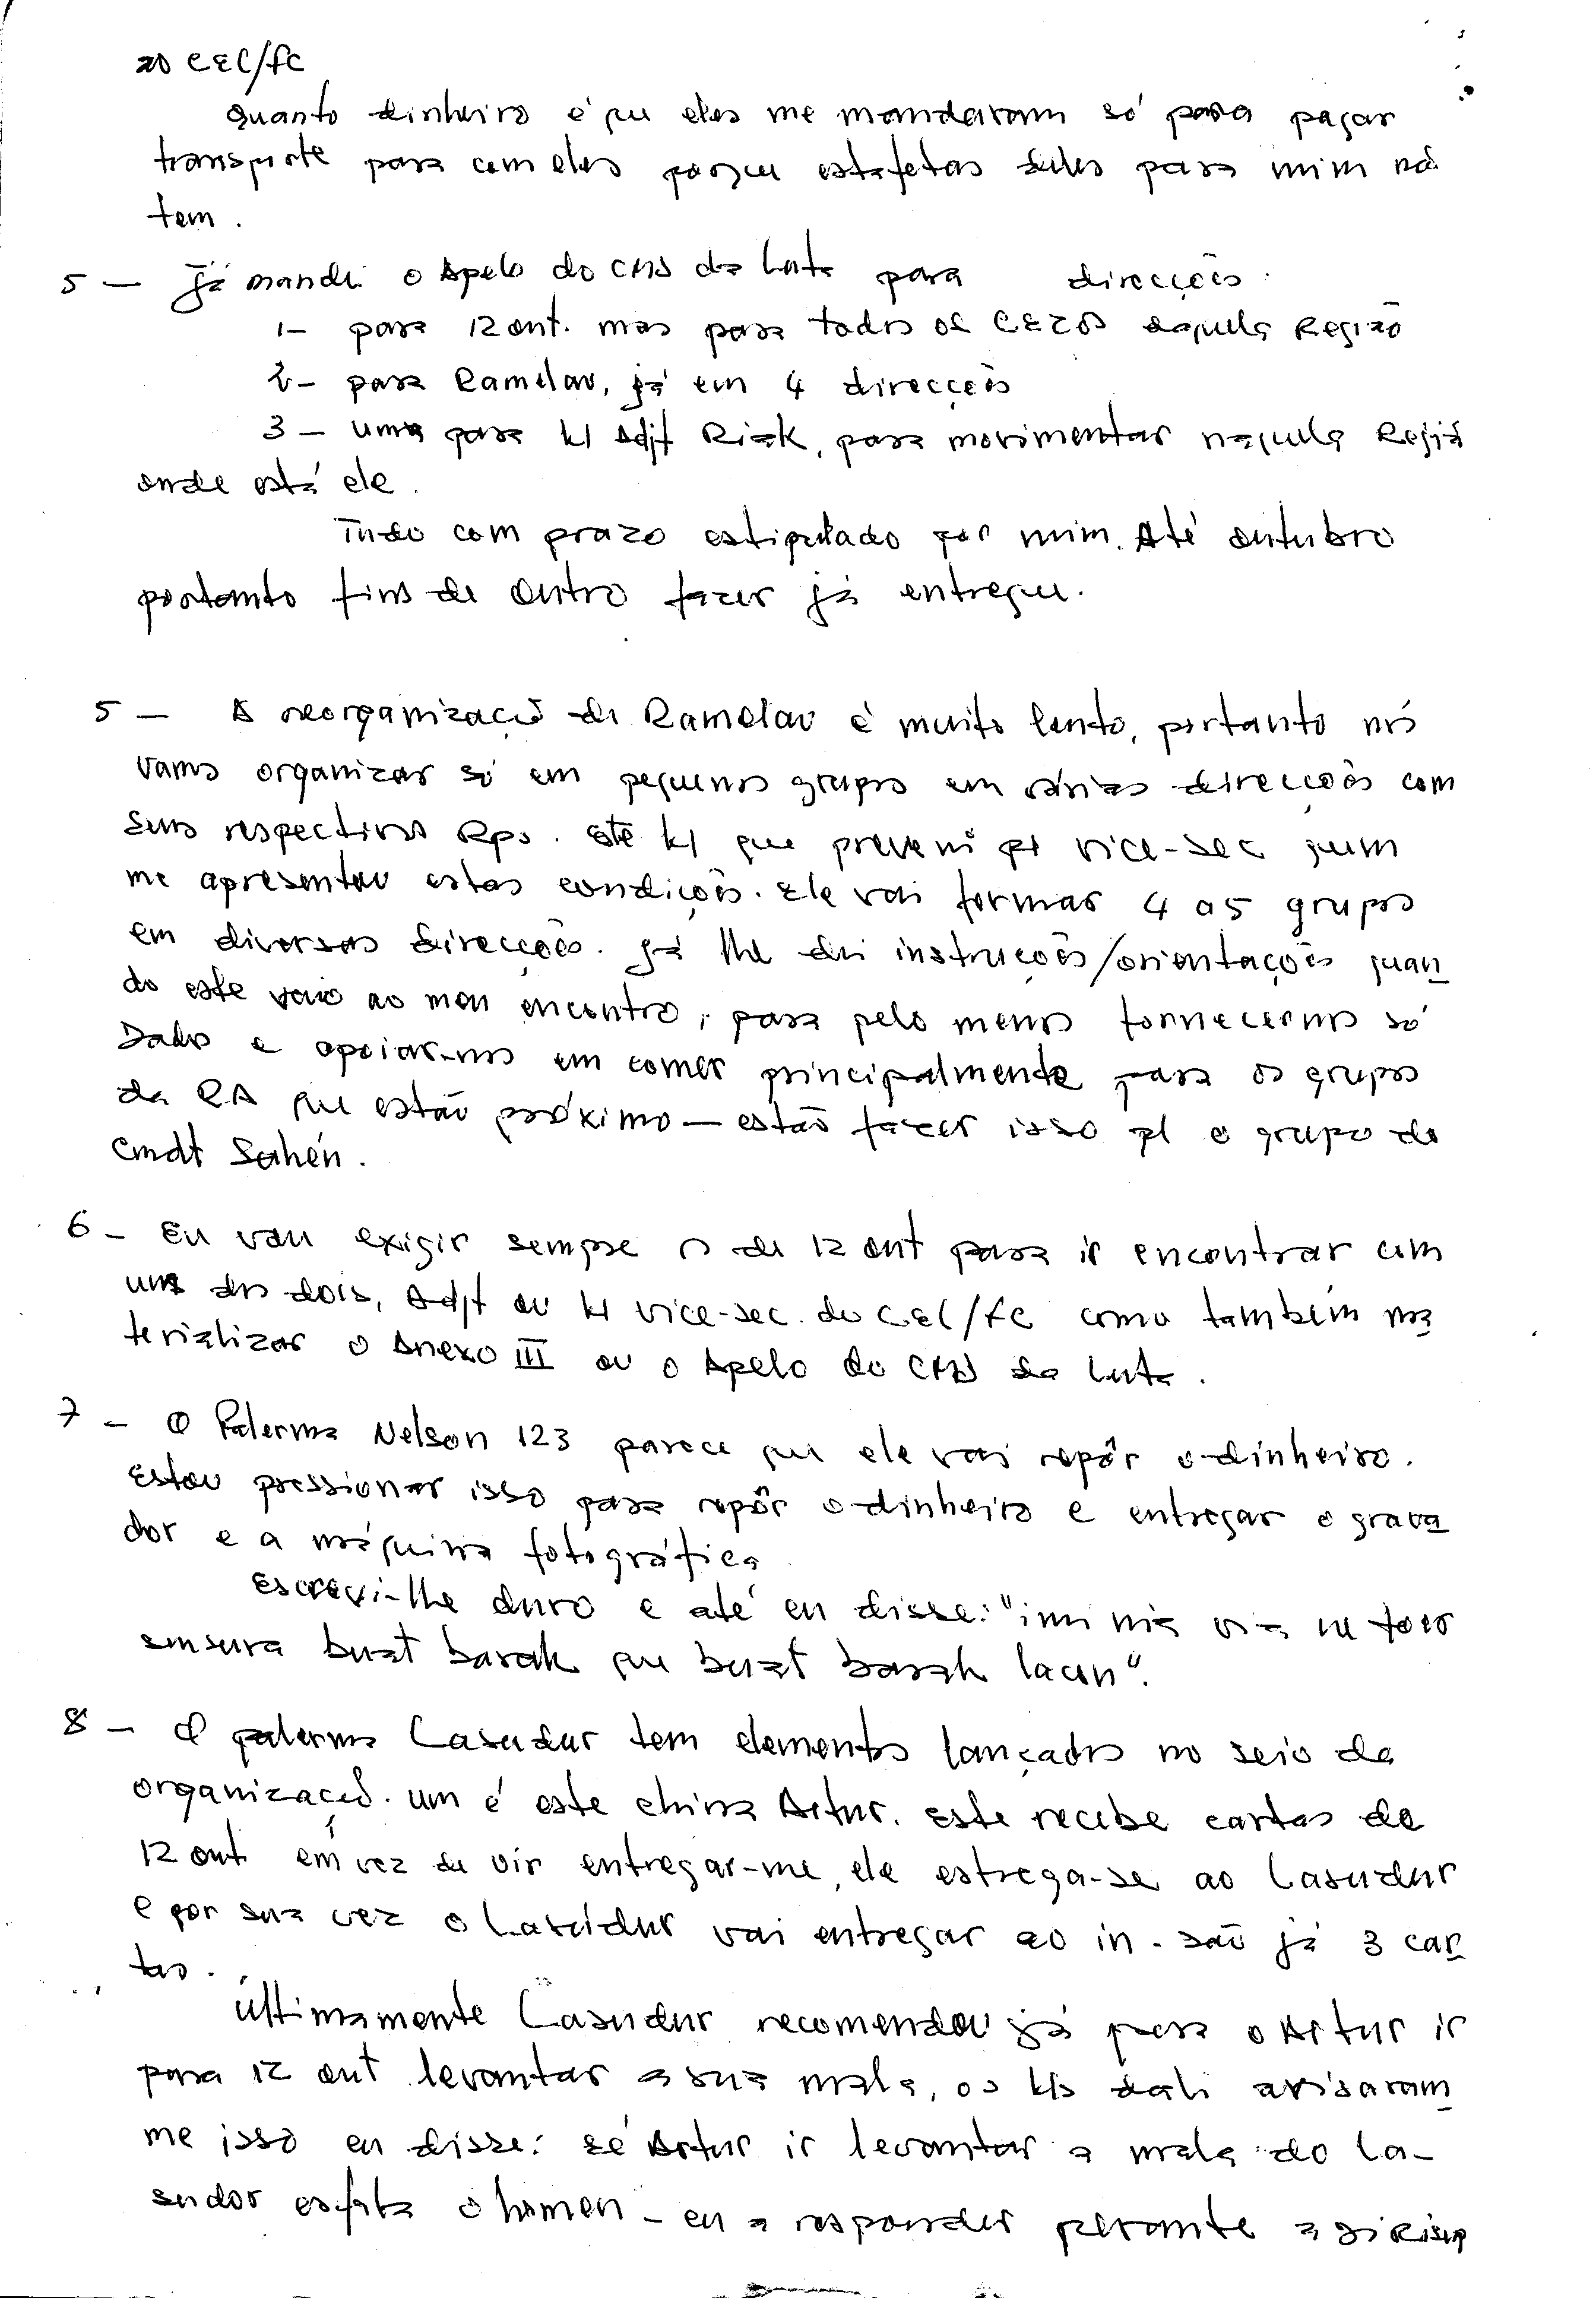 ao CEL/FC
Quanto dinheiro é que eles me mandaram só para pagar
transporte para com eles porque estafetas deles para mim não
tem.
5 - Já mandei o Apelo do CMD da Luta para direcções.
1- para 12 out. mas para todos os CEZOS daquela Região
2- para Ramelau, já em 4 direcções
3 - uma para H Adjt Riak, para movimentar naquela Regiã
onde está ele.
Tudo com prazo estipulado por mim. Até outubro
portanto fins de outro fazer já entregue.
5 - A reorganização de Ramelau é muito lento, portanto nós
vamos organizar só em pequenos grupos em várias direcções com
seus respectivos Rps. Este H que preveni pª vice-sec quem
me apresentou estas condições. Ele vai formar 4 a 5 grupos
em diversas direcções. Já lhe dei instruções/orientações quan
do este veio ao meu encontro, para pelo menos fornecernos só
Dados e apoiar-nos em comer principalmente para os grupos
da RA que estão próximo - estão fazer isso pl o grupo do
Cmdt Sahén.
6 - Eu vou exigir sempre o de 12 out para ir encontrar com
um dos dois, Adjt ou H vice-sec. do CEL/FC como também ma
terializar o Anexo III ou o Apelo do CMD da Luta.
7 - O Palerma Nelson 123 parece que ele vai repôr o dinheiro.
Estou pressionar isso para repôr o dinheiro e entregar o grava
dor e a máquina fotográfica
Escrevi-lhe duro e até eu disse: "imi nia
buat barak que buat barak lacun".
8 - O palerma Lasudur tem elementos lançados no seio da
organização. um é este china Artur. Este recebe cartas de
12 out em vez de vir entregar-me, ele estrega-se ao Lasudur
e por sua vez o Lasudur vai entregar ao in. são já 3 car
tas.
Últimamente Lasudur recomendou já para o Artur ir
para 12 out levantar a sua mala, os Hs dali avisaram
me isso eu disse: se Artur ir levantar a mala do La-
sudor o homen - eu a responder perante a